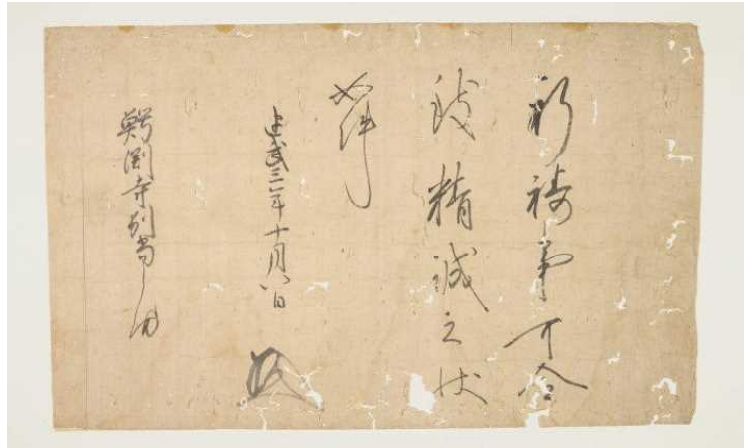 祈祷事可令
致精誠之状
如件
建武三年十月八日
鰐淵寺別当御房